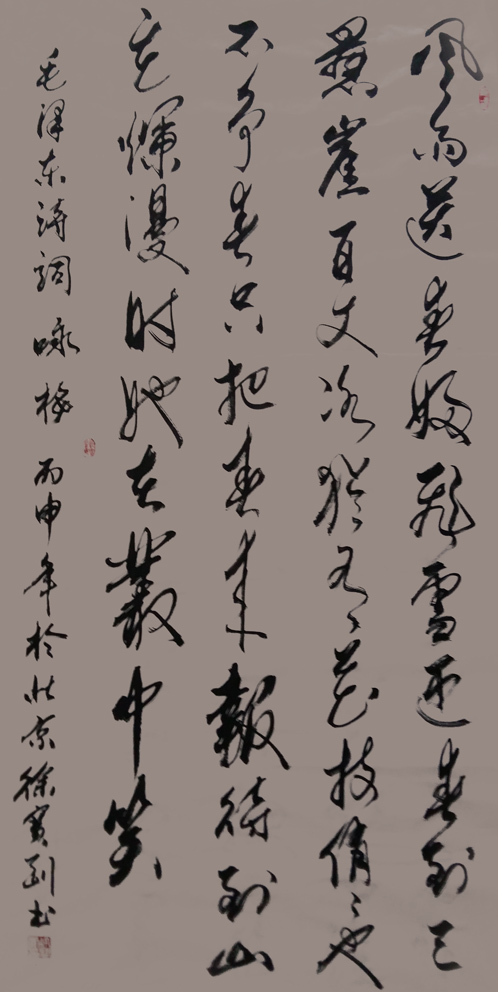 風雨送春歸飛雪迎春到已
懸崖百丈冰猶有花枝俏々也
不爭春只把春來報待到山
花爛漫時她在叢中笑
毛泽东詩詞 咏梅 丙申年於北京徐寶書